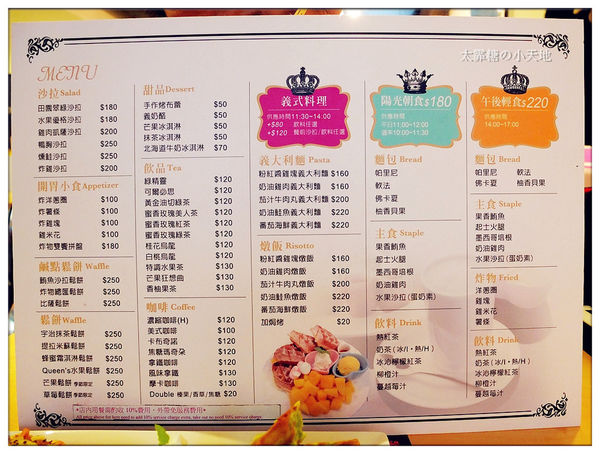 太露糖の小天地
MENU
沙拉Salad
田園翠綠沙拉 $180
水果優格沙拉 $180
雞肉凱薩沙拉 $200
鴨胸沙拉 $250
燻鮭沙拉 $250
炸雞沙拉 $200
開胃小食Appetizer
炸洋蔥圈 $100
炸薯條 $100
炸雞塊 $100
雞米花 $100
炸物雙饗拼盤 $180
鹹點鬆餅Waffle
鮪魚沙拉鬆餅 $250
炸物總匯鬆餅 $250
比薩鬆餅 $250
鬆餅Waffle
宇治抹茶鬆餅 $250
提拉米蘇鬆餅 $250
蜂蜜霜淇淋鬆餅 $250
Queen's水果鬆餅 $250
芒果鬆餅 季節限定 $250
草莓鬆餅 季節限定 $250
甜品Dessert
手作烤布蕾 $50
義奶酪 $50
芒果冰淇淋 $50
抹茶冰淇淋 $50
北海道牛奶冰淇淋 $70
飲品Tea
綠精靈 $120
可爾必思 $120
黃金油切綠茶 $120
蜜香玫瑰美人茶 $120
蜜香玫瑰紅茶 $120
蜜香玫瑰綠茶 $120
桂花烏龍 $120
白桃烏龍 $120
特調水果茶 $130
芒果狂想曲 $130
香柚果茶 $130
咖啡 Coffee
濃縮咖啡(H) $120
美式咖啡 $100
卡布奇諾 $120
焦糖瑪奇朵 $120
拿鐵咖啡 $120
風味拿鐵 $130
摩卡咖啡 $120
Double 榛果/香草/焦糖 $20
•店內用餐需酌收 10%費用，外帶免服務費用•
義式料理
供應時間11:30~14:00
+$80 飲料任選
+$120 餐前沙拉/飲料任選
義大利麵 Pasta
粉紅醬雞塊義大利麵 $160
奶油雞肉義大利麵 $160
茄汁牛肉丸義大利麵 $200
奶油鮭魚義大利麵 $220
蕃茄海鮮義大利麵 $220
燉飯 Risotto
粉紅醬雞塊燉飯 $160
奶油雞肉燉飯 $160
茄汁牛肉丸燉飯 $200
奶油鮭魚燉飯 $220
蕃茄海鮮燉飯 $220
加焗烤 $20
陽光朝食$180
供應時間
平日11:00~12:00
週末10:00~11:30
麵包 Bread
帕里尼
軟法
佛卡夏
柚香貝果
主食 Staple
果香鮪魚
起士火腿
墨西哥培根
奶油雞肉
水果沙拉(蛋奶素)
飲料 Drink
熱紅茶
奶茶(冰/I•熱/H)
冰沁檸檬紅茶
柳橙汁
蔓越莓汁
午後輕食$220
供應時間
14:00~17:00
麵包 Bread
帕里尼 軟法
佛卡夏 柚香貝果
主食 Staple
果香鮪魚
起士火腿
墨西哥培根
奶油雞肉
水果沙拉(蛋奶素)
炸物 Fried
洋蔥圈
雞塊
雞米花
薯條
飲料 Drink
熱紅茶
奶茶(冰/I•熱/H)
冰沁檸檬紅茶
柳橙汁
蔓越莓汁